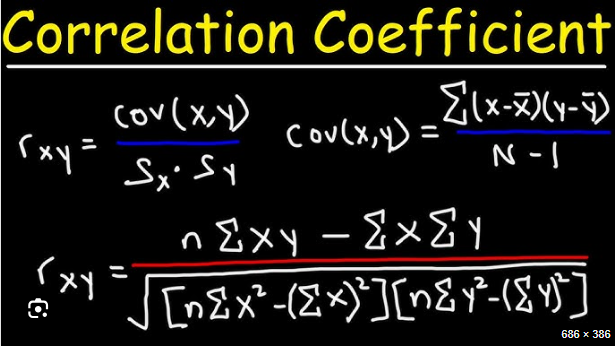 Correlation Coefficient
r_xy = cov(x,y) / S_x · S_y    cov(x,y) = Σ(x-x̄)(y-ȳ) / N-1
r_xy = n Σxy − Σx Σy / √[nΣx²-(Σx)²][nΣy²-(Σy)²]
686 × 386